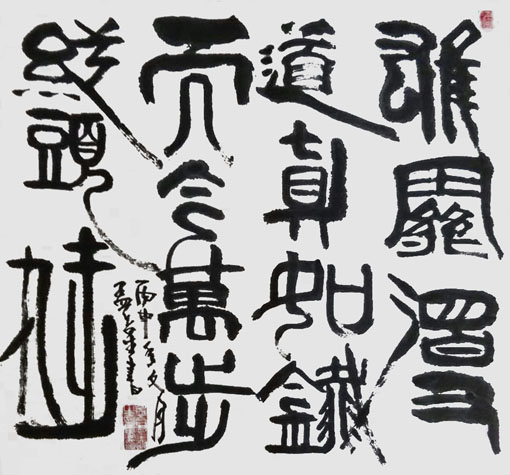 雄關漫
道真如鐵
而今萬步
從頭越
丙申年 月
孟 書